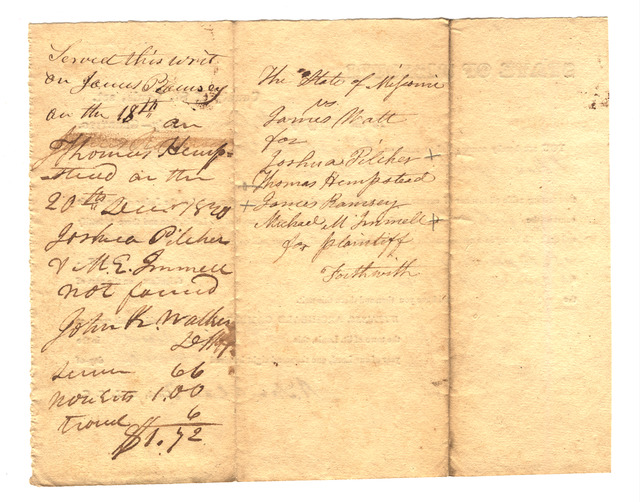 Served this writ
on James Ramsey
on the 18th an
Thomas Hemp-
-stead on the
20th Decr 1820
Joshua Pilcher
& M. E. Immell
not found
John K. Walker
66
1.00
6
$1.72
The State of Missouri
vs
James Watt
for
Joshua Pilcher +
+ Thomas Hempstead
+ James Ramsey
Michael M Immell +
for plaintiff
Forthwith